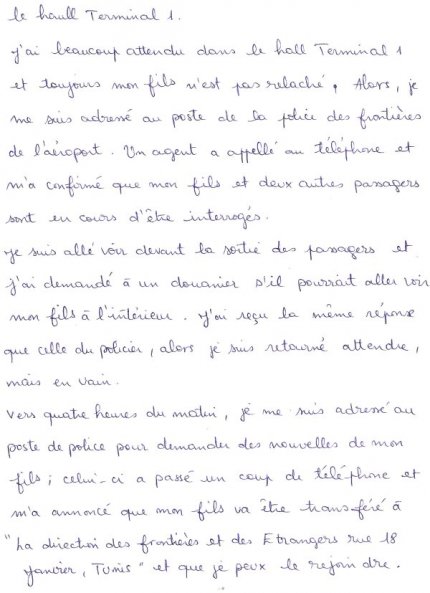 le haull Terminal 1.
J'ai beaucoup attendu dans le hall Terminal 1
et toujours mon fils n'est pas relaché. Alors, je
me suis adressé au poste de la police des frontières
de l'aéroport. Un agent a appellé au téléphone et
m'a confirmé que mon fils et deux autres passagers
sont en cours d'être interrogés.
Je suis allé voir devant la sortie des passagers et
j'ai demandé à un douanier s'il pourrait aller voir
mon fils à l'intérieur. J'ai reçu la même réponse
que celle du policier, alors je suis retourné attendre,
mais en vain.
Vers quatre heures du matin, je me suis adressé au
poste de police pour demander des nouvelles de mon
fils ; celui-ci a passé un coup de téléphone et
m'a annoncé que mon fils va être transféré à
"La direction des frontières et des Etrangers rue 18
Janvier, Tunis" et que je peux le rejoindre.